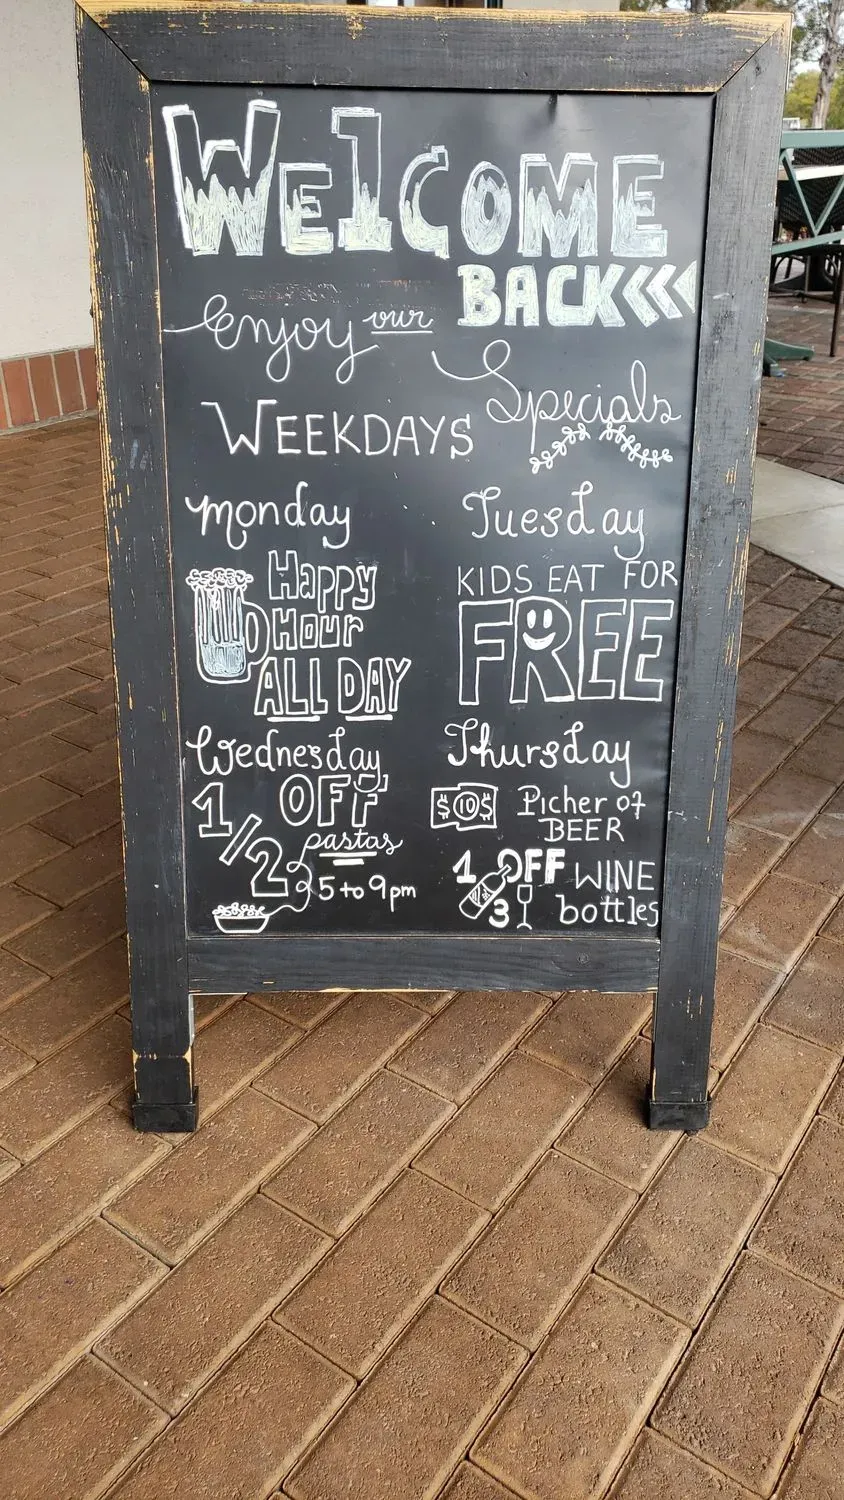 Welcome
BACK<<<
enjoy our
Specials
WEEKDAYS
Monday
Happy
Hour
ALL DAY
Tuesday
KIDS EAT FOR
FREE
Wednesday
1/2 OFF
pastas
5 to 9pm
Thursday
$10$ Picher of
BEER
1/3 OFF WINE
bottles